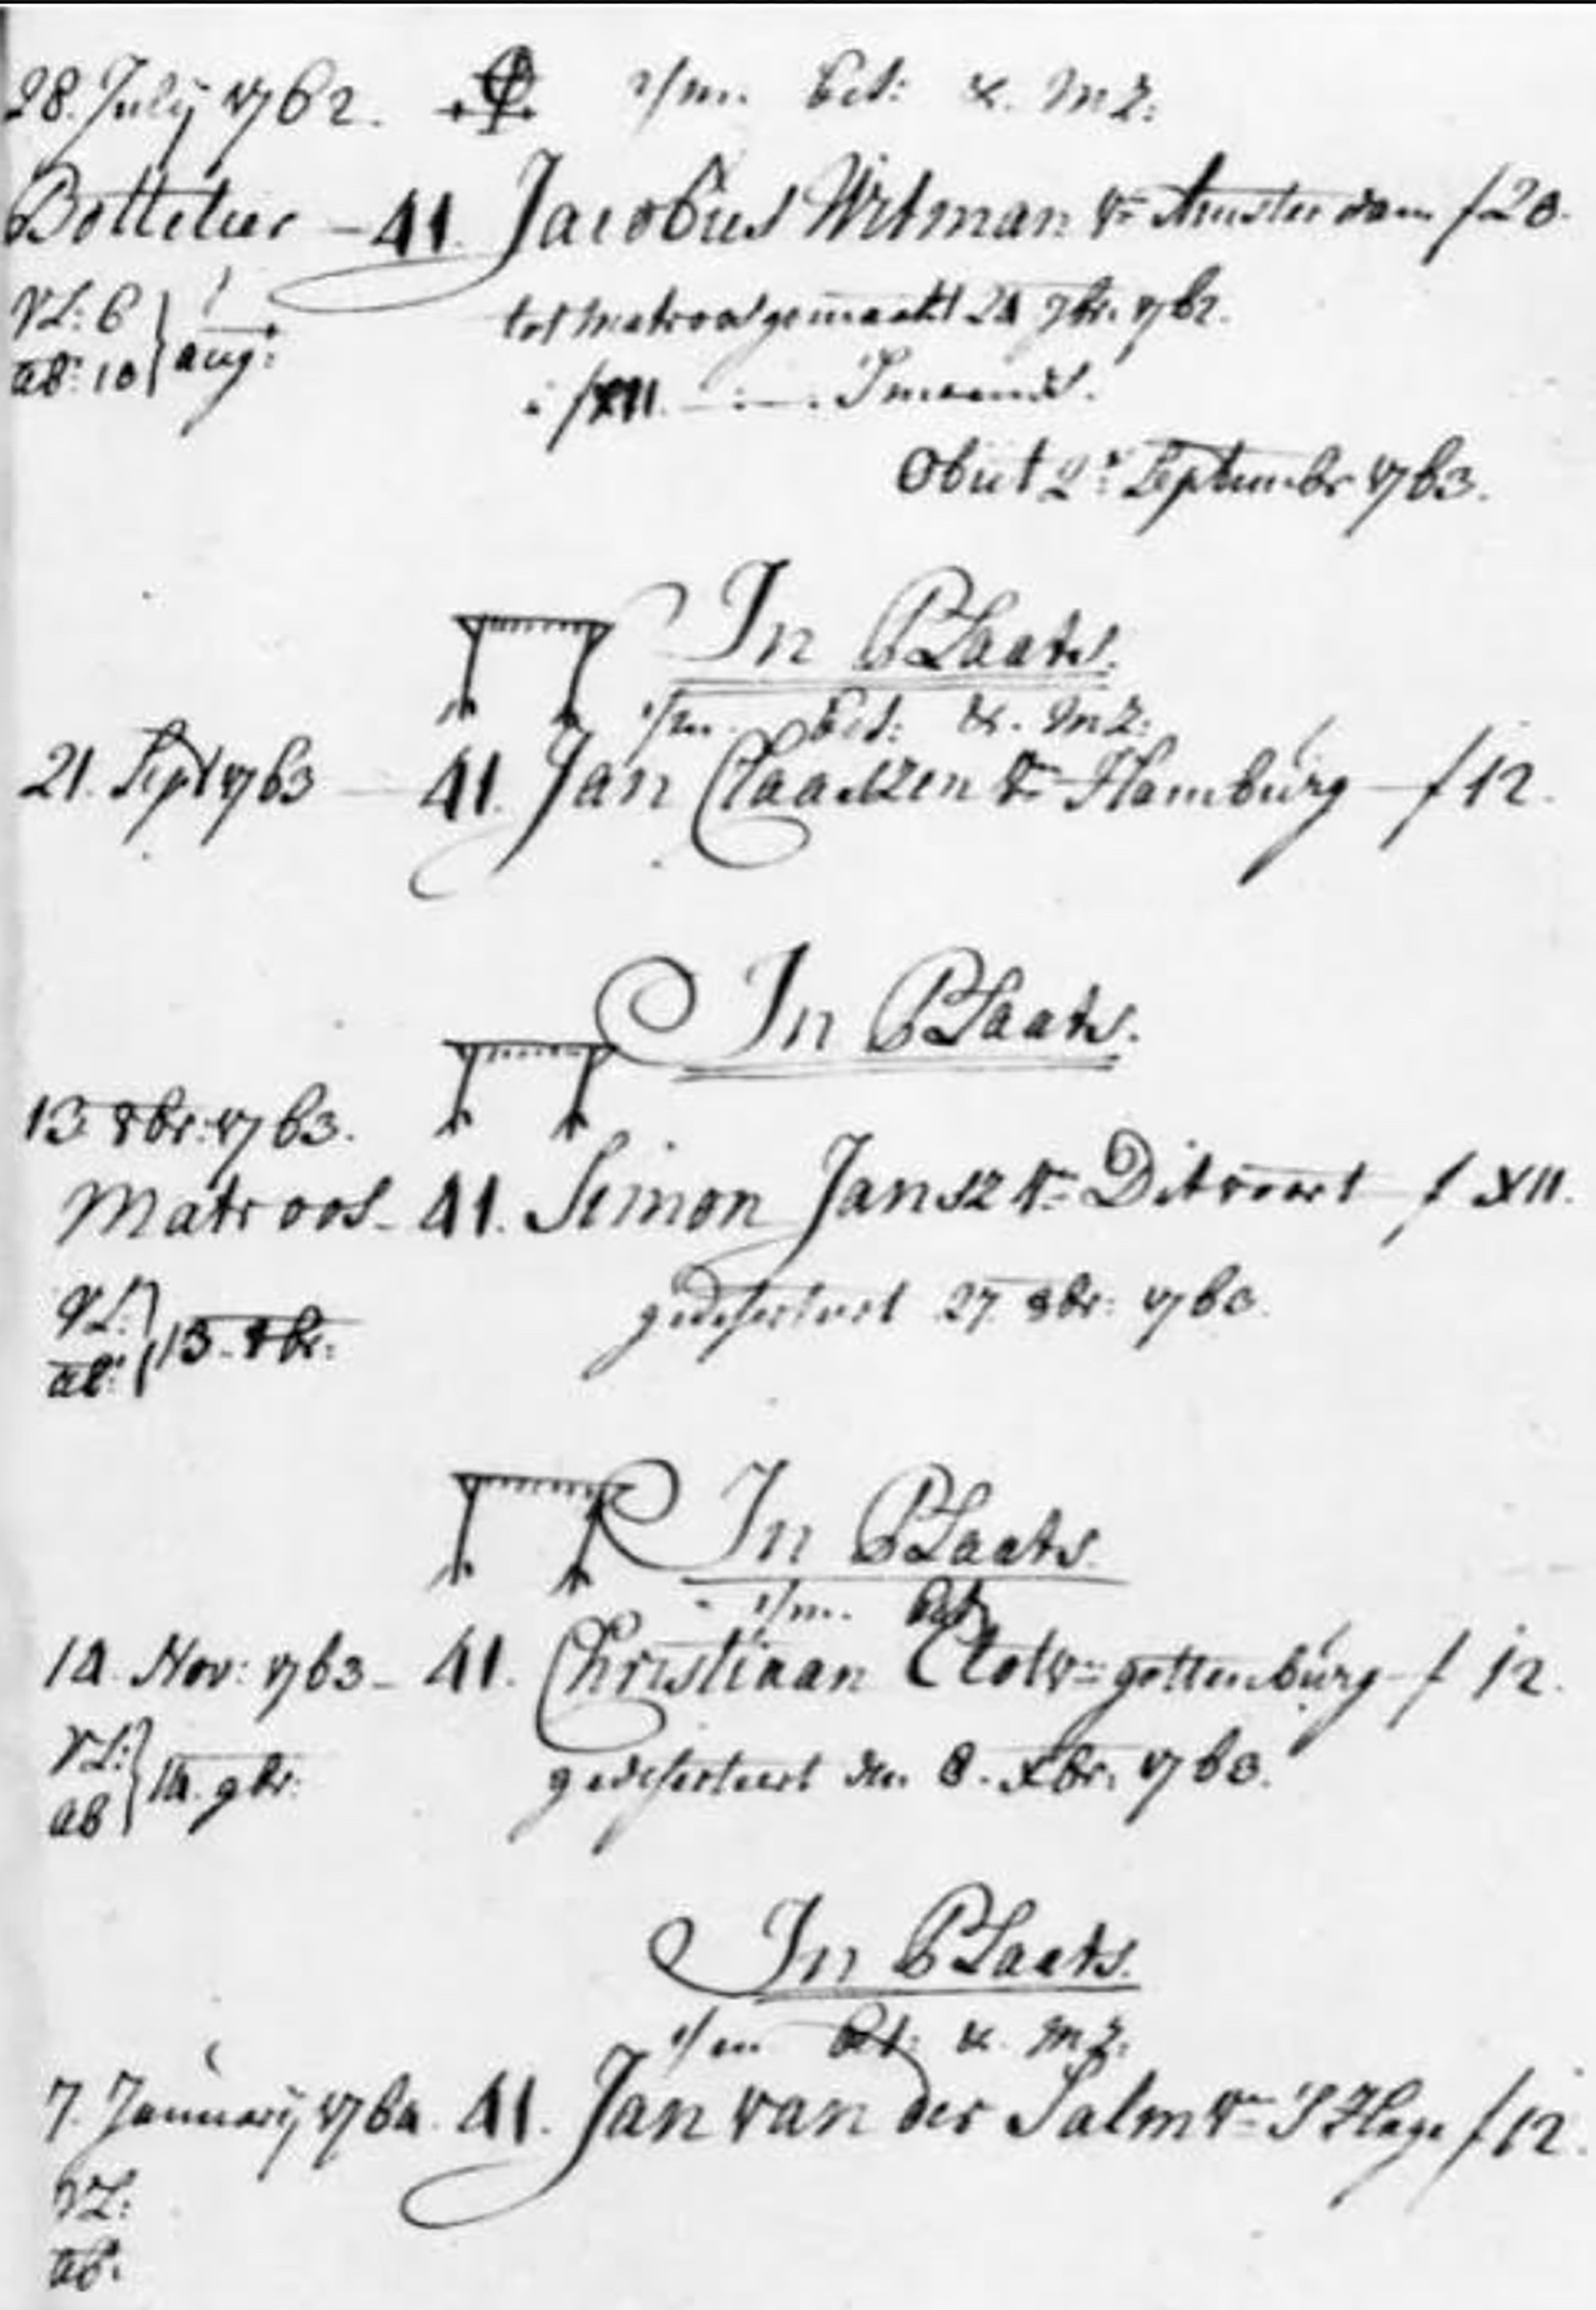 28. July 1762. 1/m. Bet: &. MZ:
Bottelier - 41. Jacobus Witman Vn Amsterdam f 20.
VL: 6
ab: 10 } aug:
tot matroos gemaakt 24 7br. 1762.
à f XII.
Obiit 2: September 1763.
In PLaats.
1/m. Bet: &. MZ:
21. Sept 1763 - 41. Jan Claaszen Vn Hamburg - f 12.
In PLaats.
13 8br: 1763.
Matroos - 41. Simon Jansz Vn Ditvoort f XII.
VL:
ab: } 13. 8br:
gedeserteert 27 8br: 1763.
In PLaats.
1/m. Bet
14. Nov: 1763 - 41. Christiaan Clot Vn gottenburg - f 12.
VL:
ab } 14. 9br:
gedeserteert den 8. Xbr. 1763.
In PLaats.
1/m Bet: &. MZ:
7. January 1764. 41. Jan van der Salm Vn S Hage f 12.
VL:
ab: